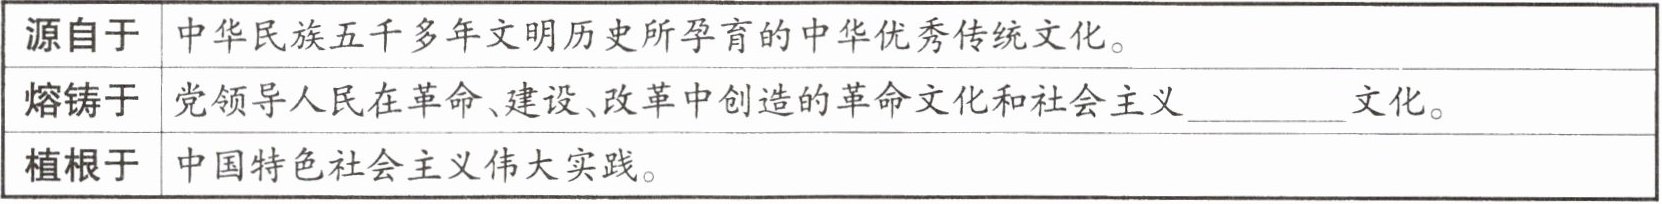 源自于 中华民族五千多年文明历史所孕育的中华优秀传统文化。
熔铸于 党领导人民在革命、建设、改革中创造的革命文化和社会主义________文化。
植根于 中国特色社会主义伟大实践。